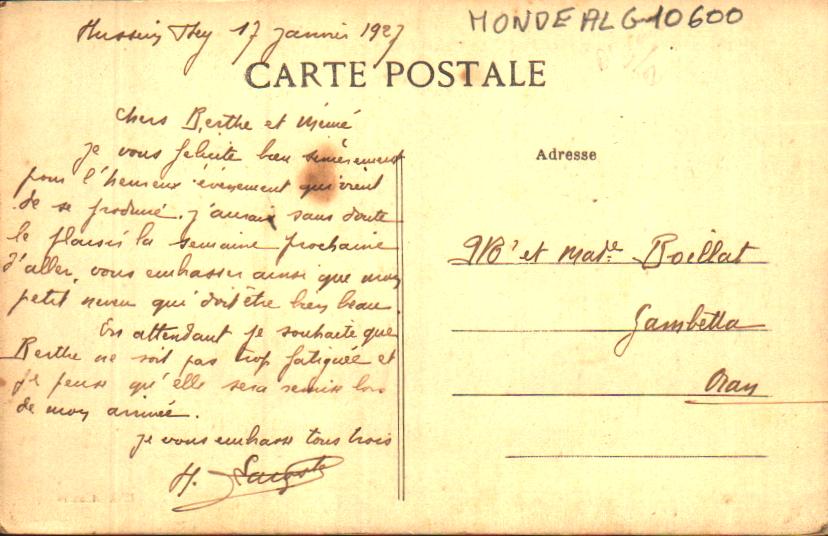 Hussein Dey 17 janvier 1927
MONDEALG10600
CARTE POSTALE
Chers Berthe et Mémé
je vous felicite bien sincèrement
pour l'heureux évènement qui vient
de se produire. j'aurai sans doute
le plaisir la semaine prochaine
d'aller vous embrasser ainsi que mon
petit neveu qui doit être bien beau.
En attendant je souhaite que
Berthe ne soit pas trop fatiguée et
je pense qu'elle sera remise lors
de mon arrivée.
je vous embrasse tous trois
H.
Adresse
Mr et Made Boillat
Gambetta
Oran